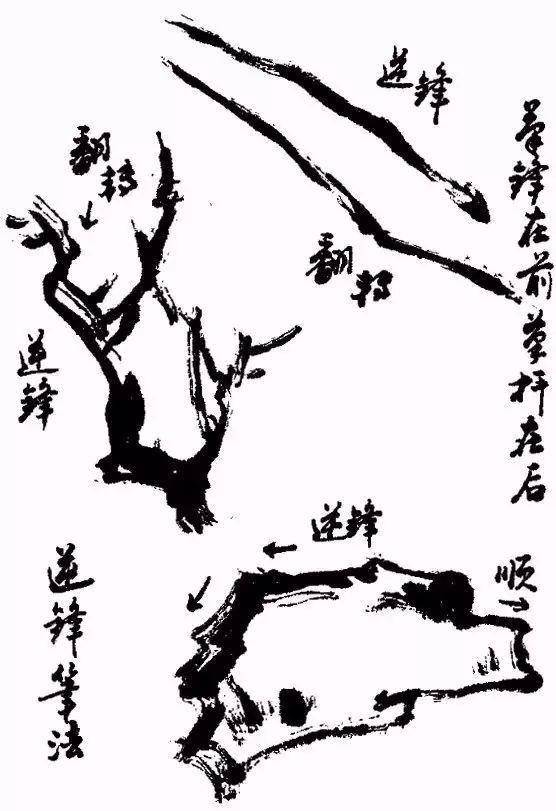 逆锋
笔锋在前笔杆在后
翻转
翻转
逆锋
逆锋
顺
逆锋笔法